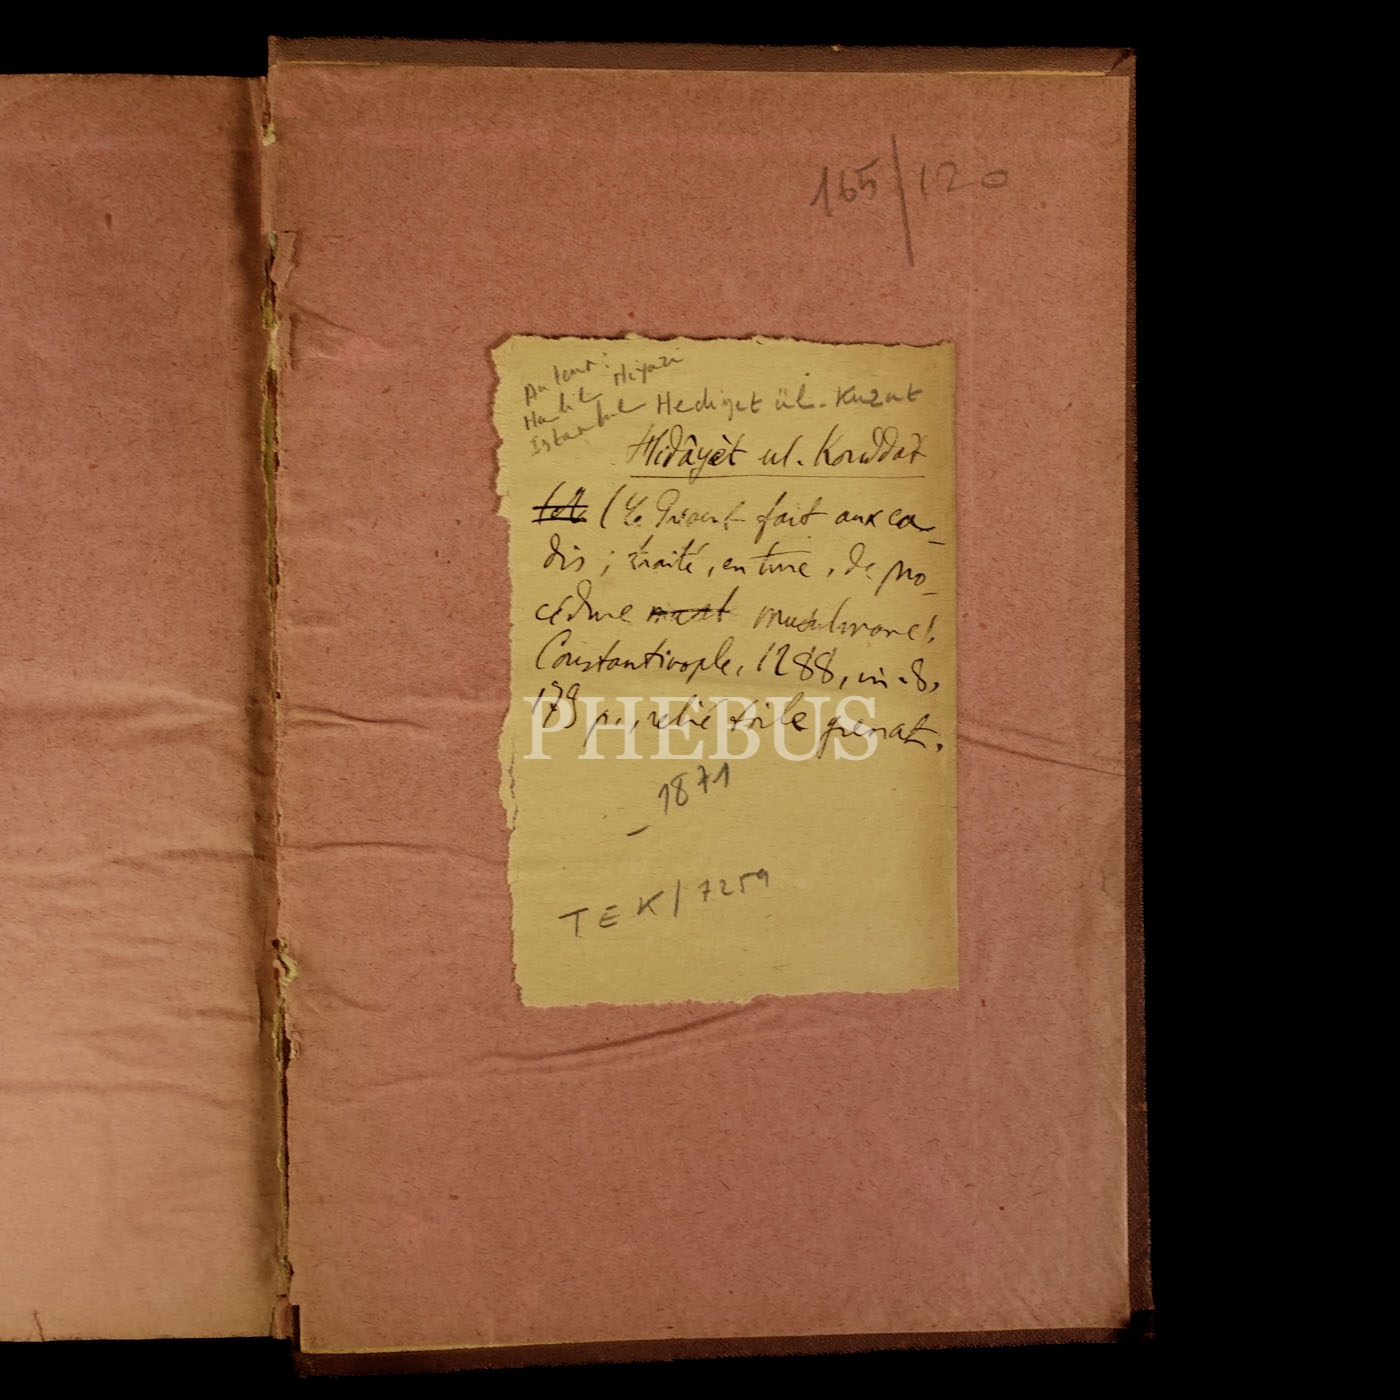 165/120
Auteur:
Halil Niyazi
Istanbul
Hediyet ül-Kuzat
Hidâyèt ul-Kouddat
(Le Présent fait aux ca-
dis; traité, en turc, de pro-
cédure musulmane).
Constantinople, 1288, in-8,
179 p., relié toile grenat.
PHEBUS
_1871
TEK/7259